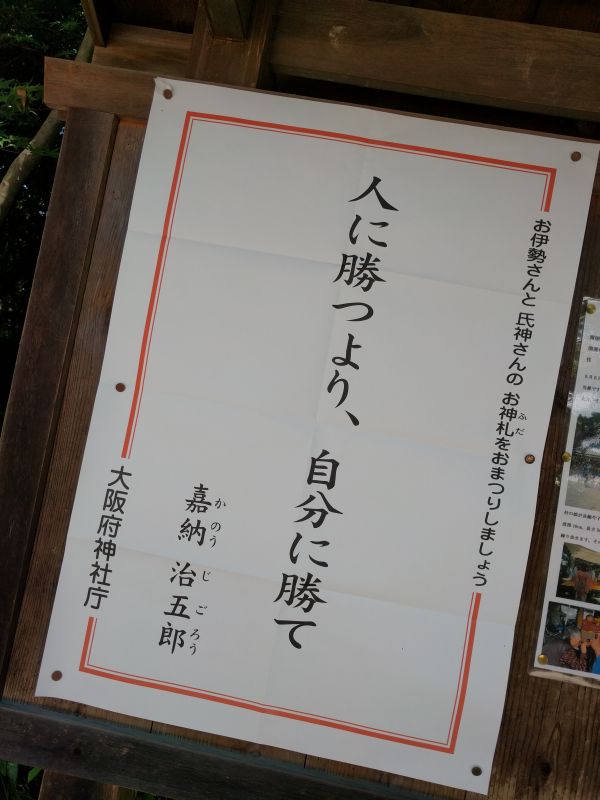 お伊勢さんと 氏神さんの お神札をおまつりしましょう
ふだ
人に勝つより、 自分に勝て
嘉納 治五郎
かのう じごろう
大阪府神社庁